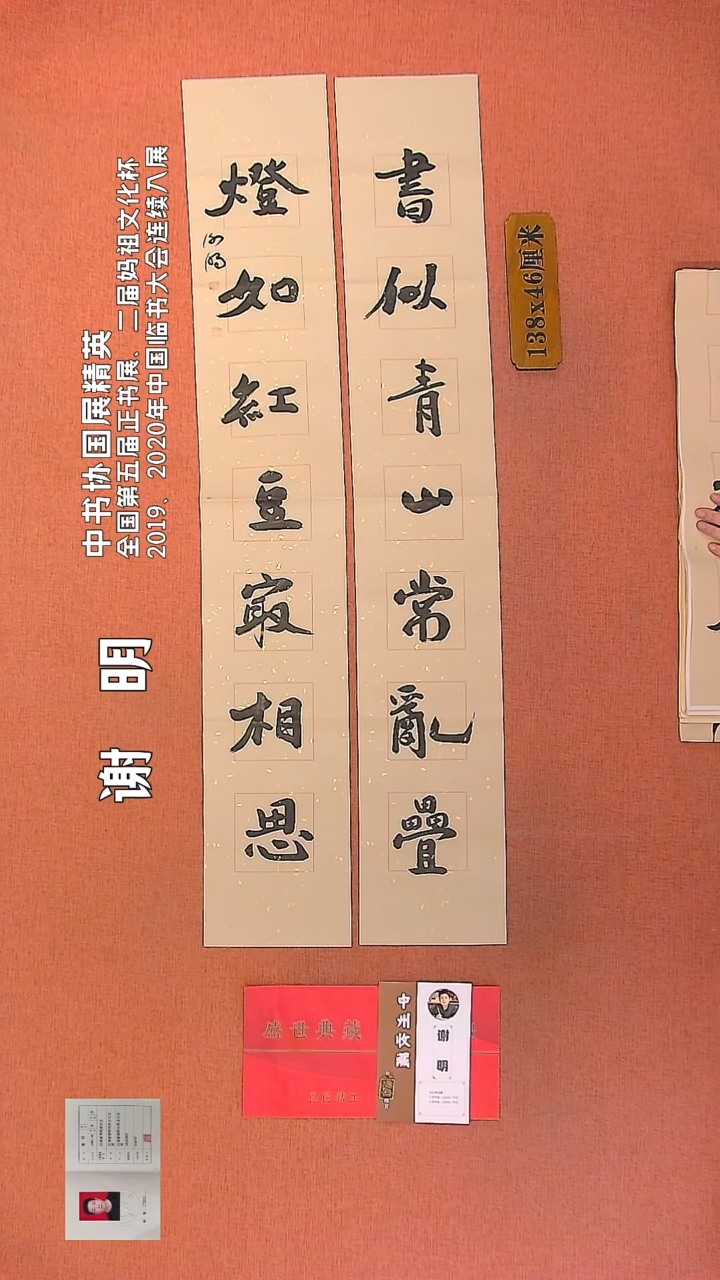 書似青山常亂疊
燈如紅豆寂相思
谢明
中书协国展精英
全国第五届正书展、二届妈祖文化杯
2019、2020年中国临书大会连续入展
谢 明
138x46厘米
盛世典藏
中州收藏
谢 明